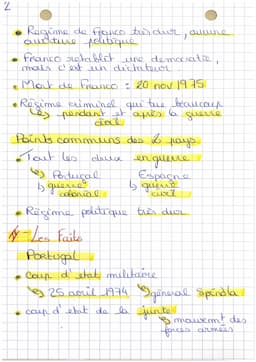 2
• Régime de Franco très dur, aucune
ouverture politique
• Franco rétablit une démocratie,
mais c'est un dictateur
• Mort de Franco : 20 nov 1975
• Régime criminel qui tue beaucoup
↳ pendant et après la guerre
civil
Points communs des 2 pays
• Tout les deux en guerre
↳ Portugal Espagne
↳ guerre ↳ guerre
colonial civil
• Régime politique très dur
- Les Faits
Portugal
• coup d'etat militaire
↳ 25 avril 1974 ↳ général Spinola
• coup d'état de la junte
↳ mouvemt des
forces armées